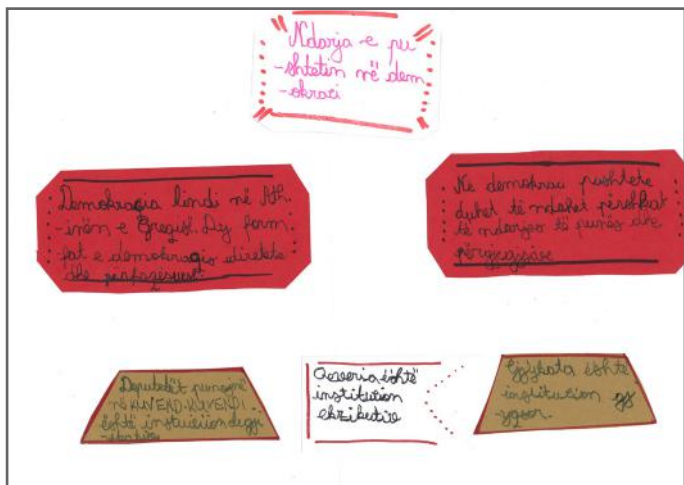 Ndarja e pu
-shtetin në dem
-okraci
Demokracia lindi në Ath
-inën e Greqish. Dy form
fat e demokragis direkte
dhe përfaqësuese.
Në demokraci pushtete
duhet të ndahet përshkak
të ndarjes të punës dhe
përgjegjësisë
Deputetët punojnë
në KUVEND-KUVENDI
është institucion legji
Qeveria është
institution
ekzikutiv
Gjykata është
institucion gj
yqsor.